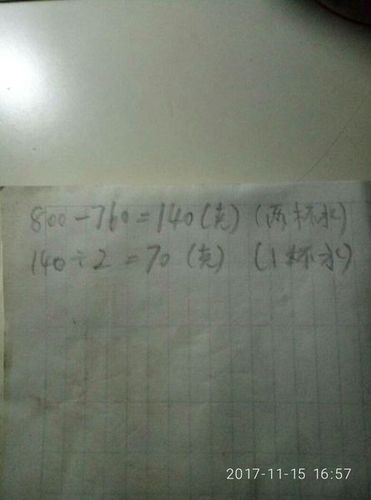 800-760=140(克)(两杯水)
140÷2=70(克)(1杯水)
2017-11-15 16:57